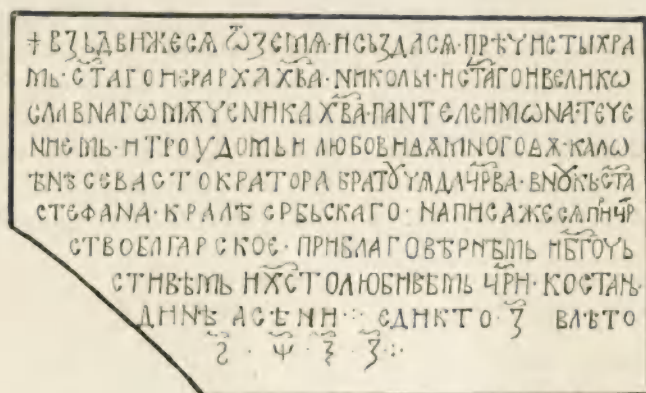 † ВꙀЬДВИЖЕСѦ ѾꙀЕМѦ·ИСЬꙀДАСѦ·ПРѢЧИСТЫХРА
МЬ·СТ҃АГОИЕРАРХАХ҃ВА·НИКОЛЫ·ИСТ҃АГОИВЕЛИКѠ
СЛАВНАГѠМѪЧЕНИКАХ҃ВА·ПАНТЕЛЕИМѠНА·ТЕЧЕ
НИЕМЬ·ИТРОУДОМЬИ ЛЮБОВИѪМНОГОѪ·КАЛѠ
ѢНѢ СЕВАСТОКРАТОРА БРАТꙊЧѦДАЦР҃ВА·ВНꙊКЬСТ҃А
СТЕФАНА·КРАЛѢ СРБЬСКАГО·НАПИСАЖЕСѦПИ҃ЦР҃
СТВОБЛГАРСКОЕ·ПРИБЛАГОВѢРНѢМЬ ИБ҃ГОЧЬ
СТИВѢМЬ ИХ҃СТОЛЮБИВѢМЬ ЦР҃И·КОСТАНЬ
ДИНѢ АСѢНИ ⁘ ЕДИКТО·Ꙁ҃ ВЛѢТО
Ѕ҃·Ѱ҃·Ѯ҃·Ꙁ҃⁘